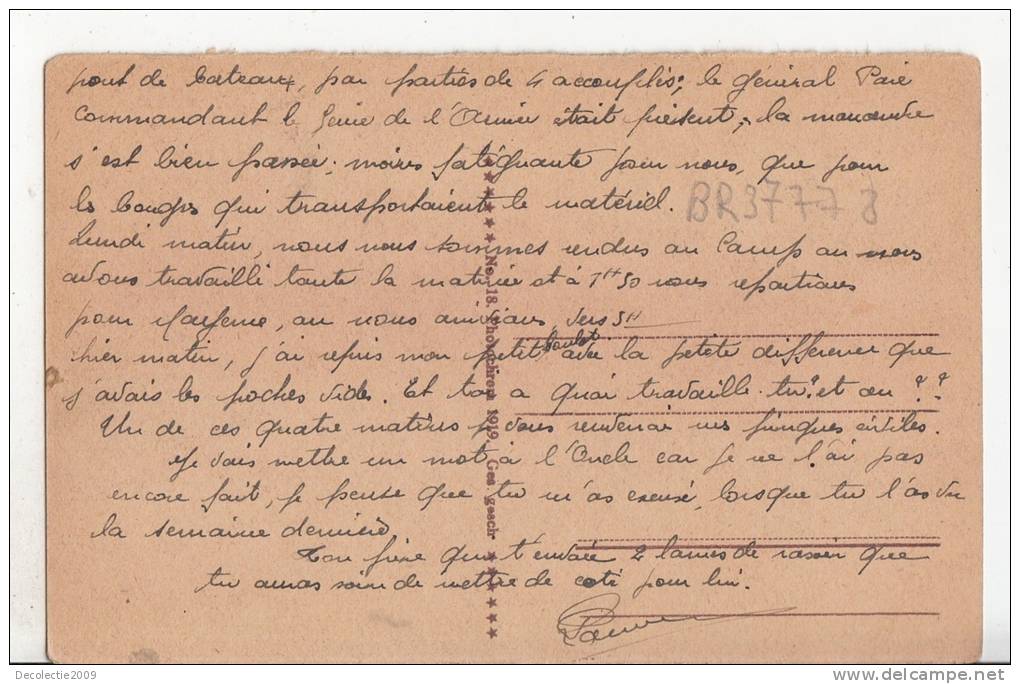 pont de bateaux, par parties de 4 accouplés; le général Paie
Commandant le Génie de l'Armée était présent; la manœuvre
s'est bien passée; moins fatiguante pour nous, que pour
les bougres qui transportaient le matériel.
BR37778
Lundi matin, nous nous sommes rendus au Camp ou nous
avons travaillé toute la matinée et à 1H30 nous repartions
pour Mayence, ou nous arrivions vers 3H
hier matin, j'ai repris mon petit boulot avec la petite différence que
j'avais les poches vides. Et toi a quoi travaille-tu? et ou??
Un de ces quatre matins je vous renverrai mes fringues civiles.
Je vais mettre un mot à l'Oncle car je ne l'ai pas
encore fait, je pense que tu m'as excusé, lorsque tu l'as vu
la semaine dernière.
Ton frère qui t'envoie 2 lames de rasoir que
tu auras soin de mettre de coté pour lui.
★★★★★ No. 18. Photochrom 1919. Ges. gesch. ★★★★★
Decolectie2009
www.delcampe.net